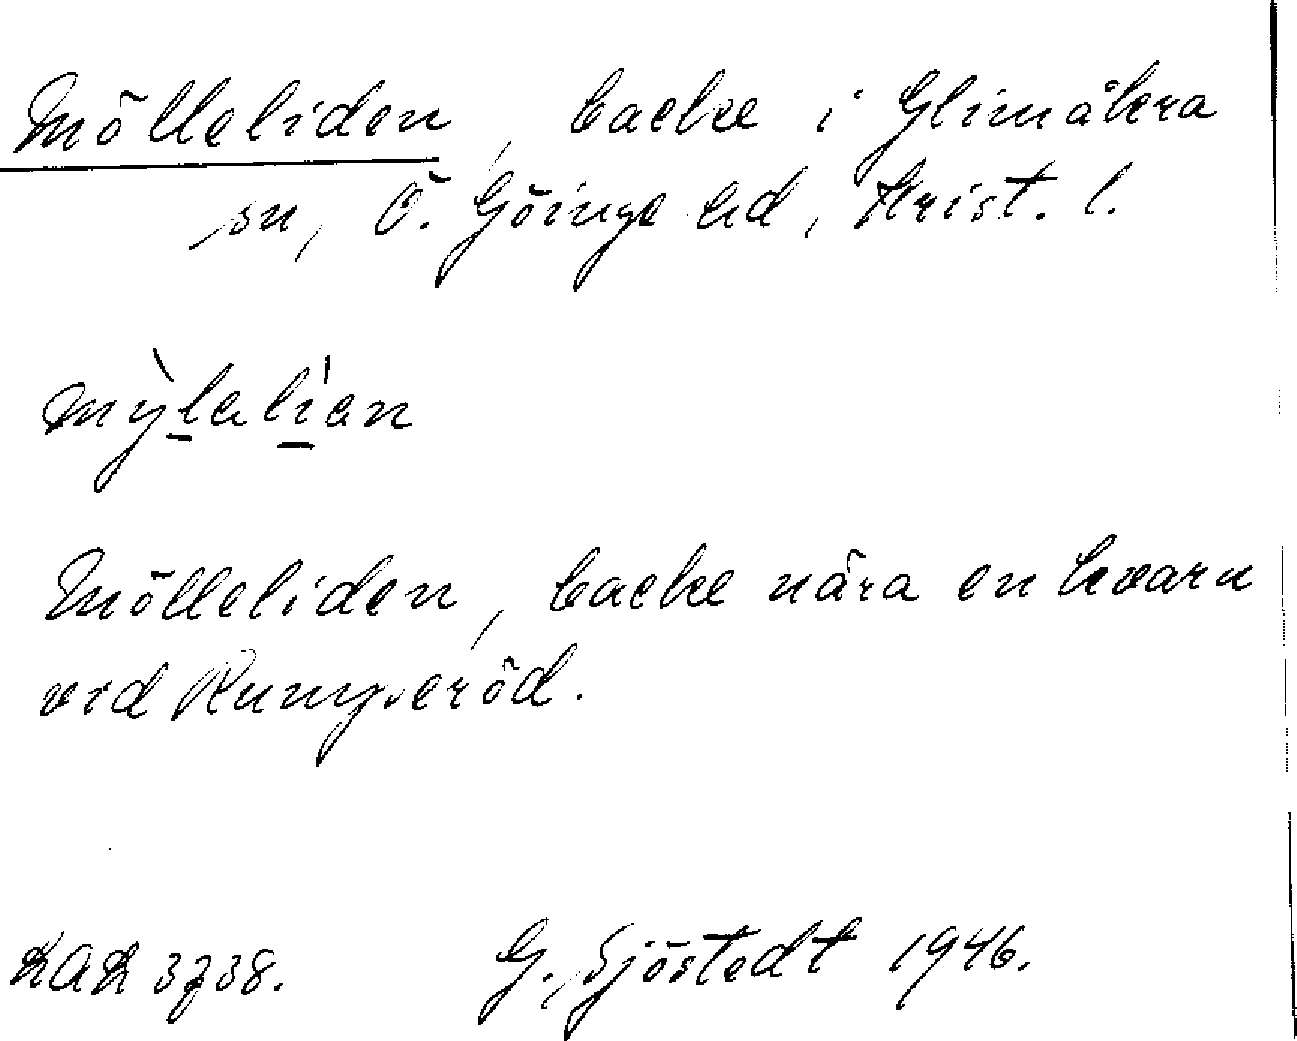 Mölleliden, backe i Glimåkra
sn, Ö. Göinge hd, Krist. l.
mỳlalian
Mölleliden, backe nära en kvarn
vid Rungeröd.
KAK 3738.   G. Sjöstedt 1946.